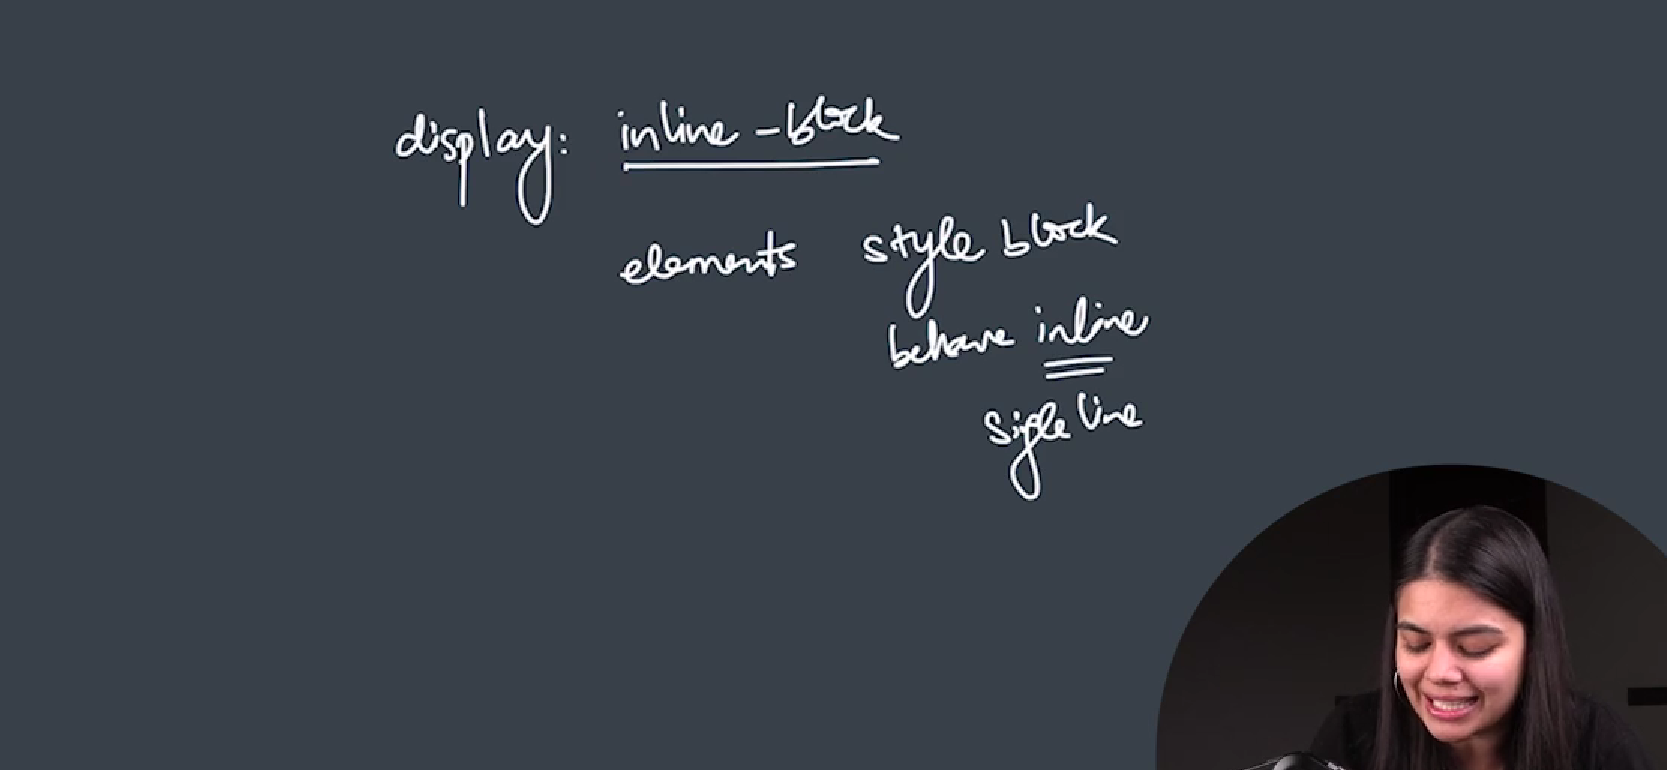 display: inline-block
elements style block
behave inline
single line